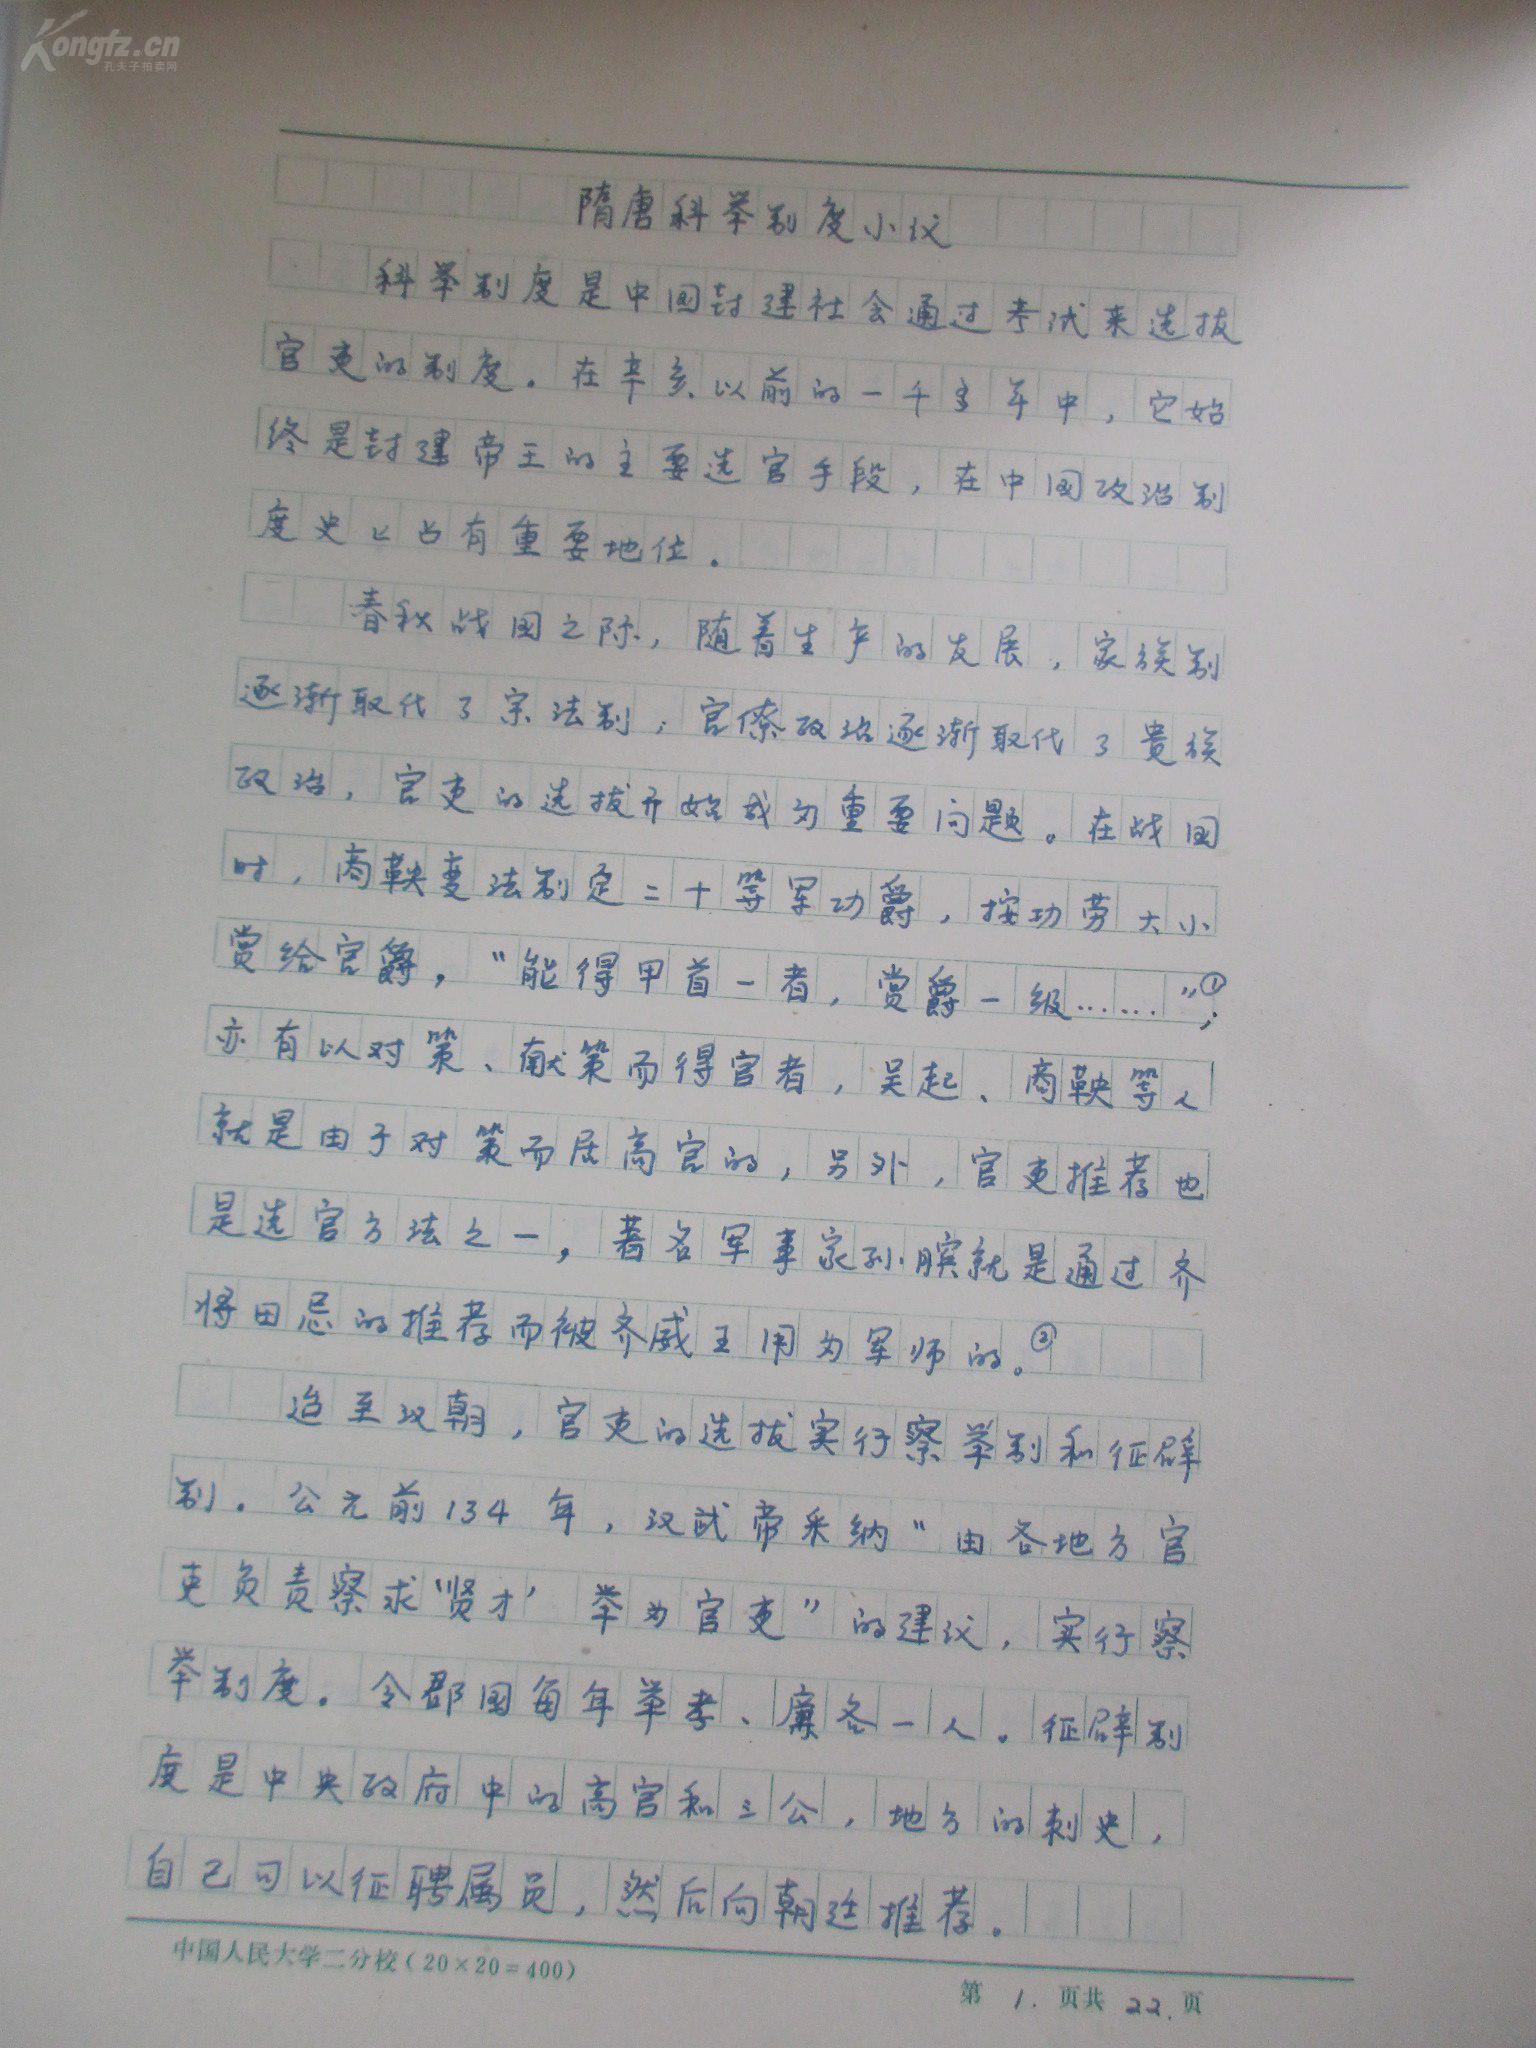 Kongfz.cn
孔夫子拍卖网
隋唐科举制度小议
科举制度是中国封建社会通过考试来选拔
官吏的制度。在辛亥以前的一千多年中，它始
终是封建帝王的主要选官手段，在中国政治制
度史上占有重要地位。
春秋战国之际，随着生产的发展，家族制
逐渐取代了宗法制；官僚政治逐渐取代了贵族
政治，官吏的选拔开始成为重要问题。在战国
时，商鞅变法制定二十等军功爵，按功劳大小
赏给官爵，“能得甲首一者，赏爵一级……”①；
亦有以对策、献策而得官者，吴起、商鞅等人
就是由于对策而居高官的，另外，官吏推荐也
是选官方法之一，著名军事家孙膑就是通过齐
将田忌的推荐而被齐威王用为军师的。②
迨至汉朝，官吏的选拔实行察举制和征辟
制。公元前134年，汉武帝采纳“由各地方官
吏负责察求‘贤才’举为官吏”的建议，实行察
举制度。令郡国每年举孝、廉各一人。征辟制
度是中央政府中的高官和三公，地方的刺史，
自己可以征聘属员，然后向朝廷推荐。
中国人民大学二分校（20×20=400）
第 1. 页共 22. 页